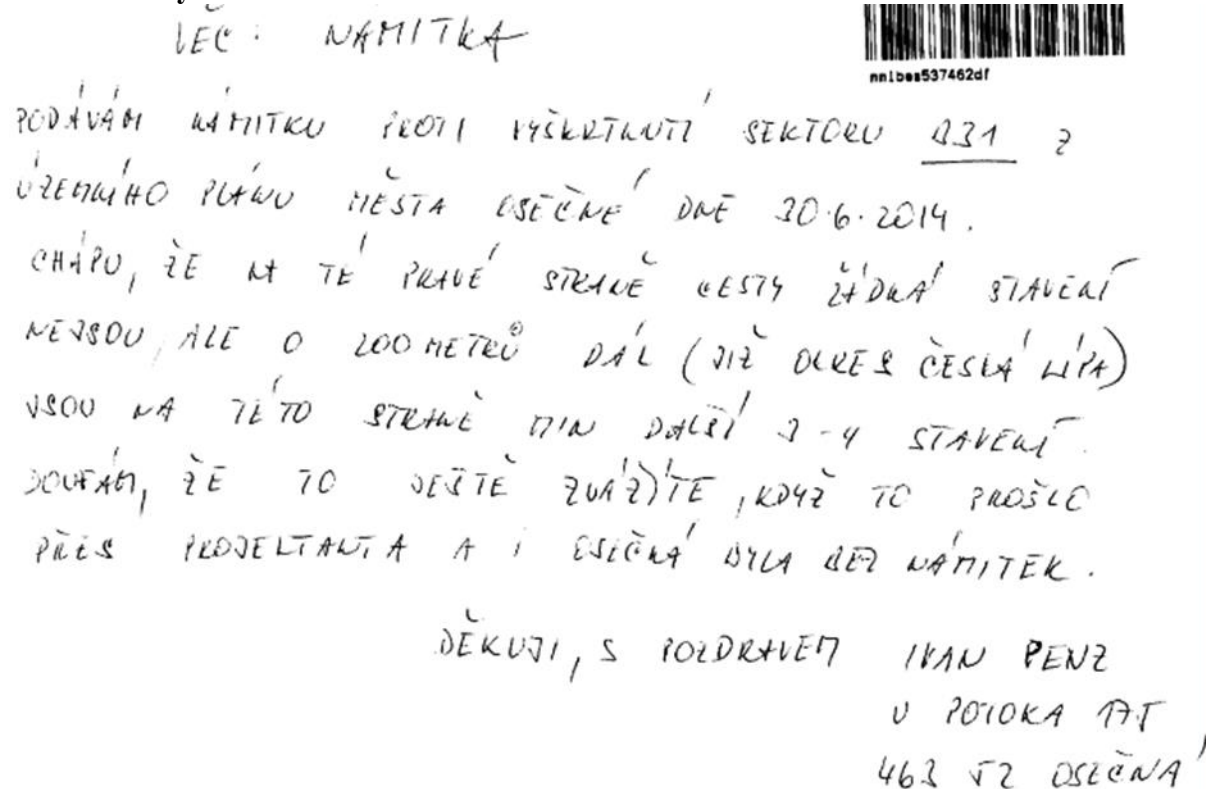 VĚC: NÁMITKA
nnlbes537462df
PODÁVÁM NÁMITKU PROTI VYŠKRTNUTÍ SEKTORU B31 Z
ÚZEMNÍHO PLÁNU MĚSTA OSEČNÉ DNE 30.6.2014.
CHÁPU, ŽE NA TÉ PRAVÉ STRANĚ CESTY ŽÁDNÁ STAVENÍ
NEJSOU, ALE O 200 METRŮ DÁL (JIŽ OKRES ČESKÁ LÍPA)
JSOU NA TÉTO STRANĚ MIN DALŠÍ 3-4 STAVENÍ.
DOUFÁM, ŽE TO JEŠTĚ ZVÁŽÍTE, KDYŽ TO PROŠLO
PŘES PROJEKTANTA A I OSEČNÁ BYLA BEZ NÁMITEK.
DĚKUJI, S POZDRAVEM IVAN PENZ
U POTOKA 175
463 52 OSEČNÁ